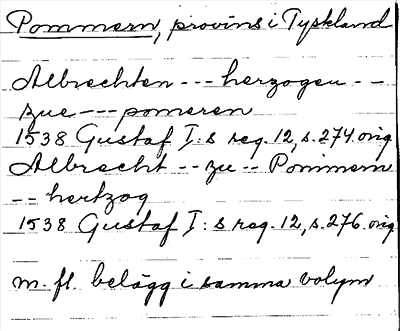 Pommern, provins i Tyskland
Albrechten --- herzogen --
zue --- pomeren
1538 Gustaf I:s reg. 12, s. 274 orig
Albrecht -- zu -- Pommern
-- hertzog
1538 Gustaf I:s reg. 12, s. 276 orig
m. fl. belägg i samma volym